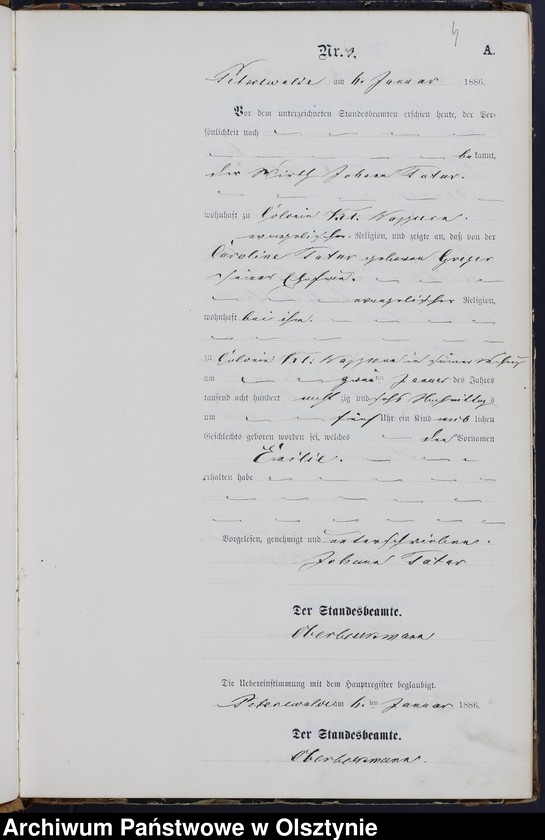 4
A.
Nr. 3.
Peterswalde am 4. Januar 1886.
Vor dem unterzeichneten Standesbeamten erschien heute, der Per-
sönlichkeit nach
bekannt,
der Wirth Johann Tatar.
wohnhaft zu Colonie
evangelischer Religion, und zeigte an, daß von der
Caroline Tatar geborene
seiner Ehefrau.
evangelischer Religion,
wohnhaft bei ihm.
zu Colonie in seiner Wohnung
am zwei ten Januar des Jahres
tausend acht hundert acht zig und sechs Nachmittags
um fünf Uhr ein Kind weib lichen
Geschlechts geboren worden sei, welches den Vornamen
Emilie.
erhalten habe
Vorgelesen, genehmigt und unterschrieben.
Johann Tatar
Der Standesbeamte.
Die Uebereinstimmung mit dem Hauptregister beglaubigt.
Peterswalde am 4. ten Januar 1886.
Der Standesbeamte.
Archiwum Państwowe w Olsztynie